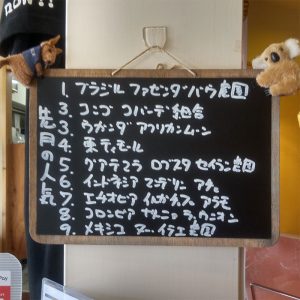 先月の人気
1. ブラジル ファゼンダ バウ農園
3. コンゴ コパーデ組合
3. ウガンダ アフリカンムーン
4. 東ティモール
5. グアテマラ ロブスタ セイラン農園
6. インドネシア マンデリン アチェ
7. エチオピア イルガチェフェ アラモ
8. コロンビア サニョ ラ ウニオン
9. メキシコ 農園
Pay